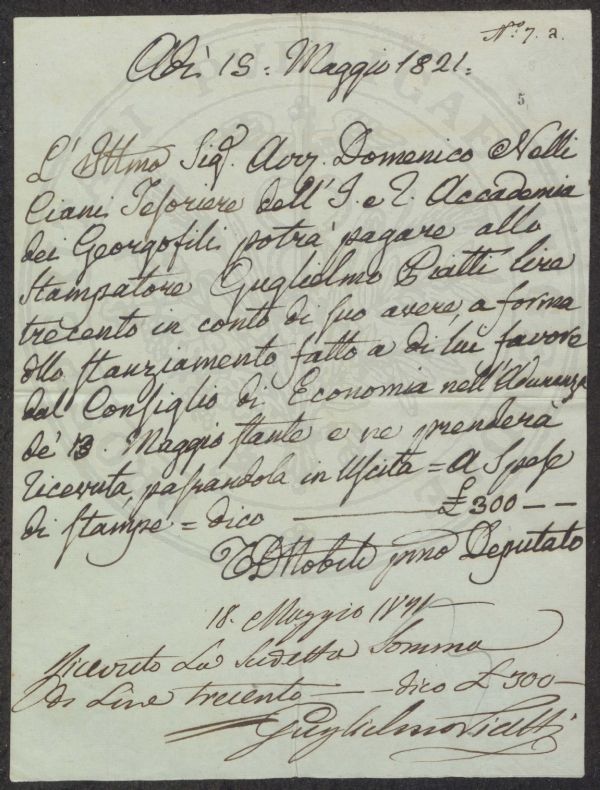 N.º 7. 2.
5
Adì 15. Maggio 1821.
L' Ill.mo Sig.r Avv. Domenico Nelli
Ciani Tesoriere dell' I. e R. Accademia
dei Georgofili potrà pagare allo
Stampatore Guglielmo Piatti lire
trecento in conto di suo avere, a forma
dllo stanziamento fatto a di lui favore
dal Consiglio di Economia nell'Adunanza
de' 13. Maggio stante e ne prenderà
ricevuta, passandola in Uscita = A Spese
di stampe = dico £ 300 — —
Nobili pmo Deputato
18. Maggio 1821
Ricevuto La Sudetta Somma
di Lire trecento — dico £ 300 —
Guglielmo Piatti